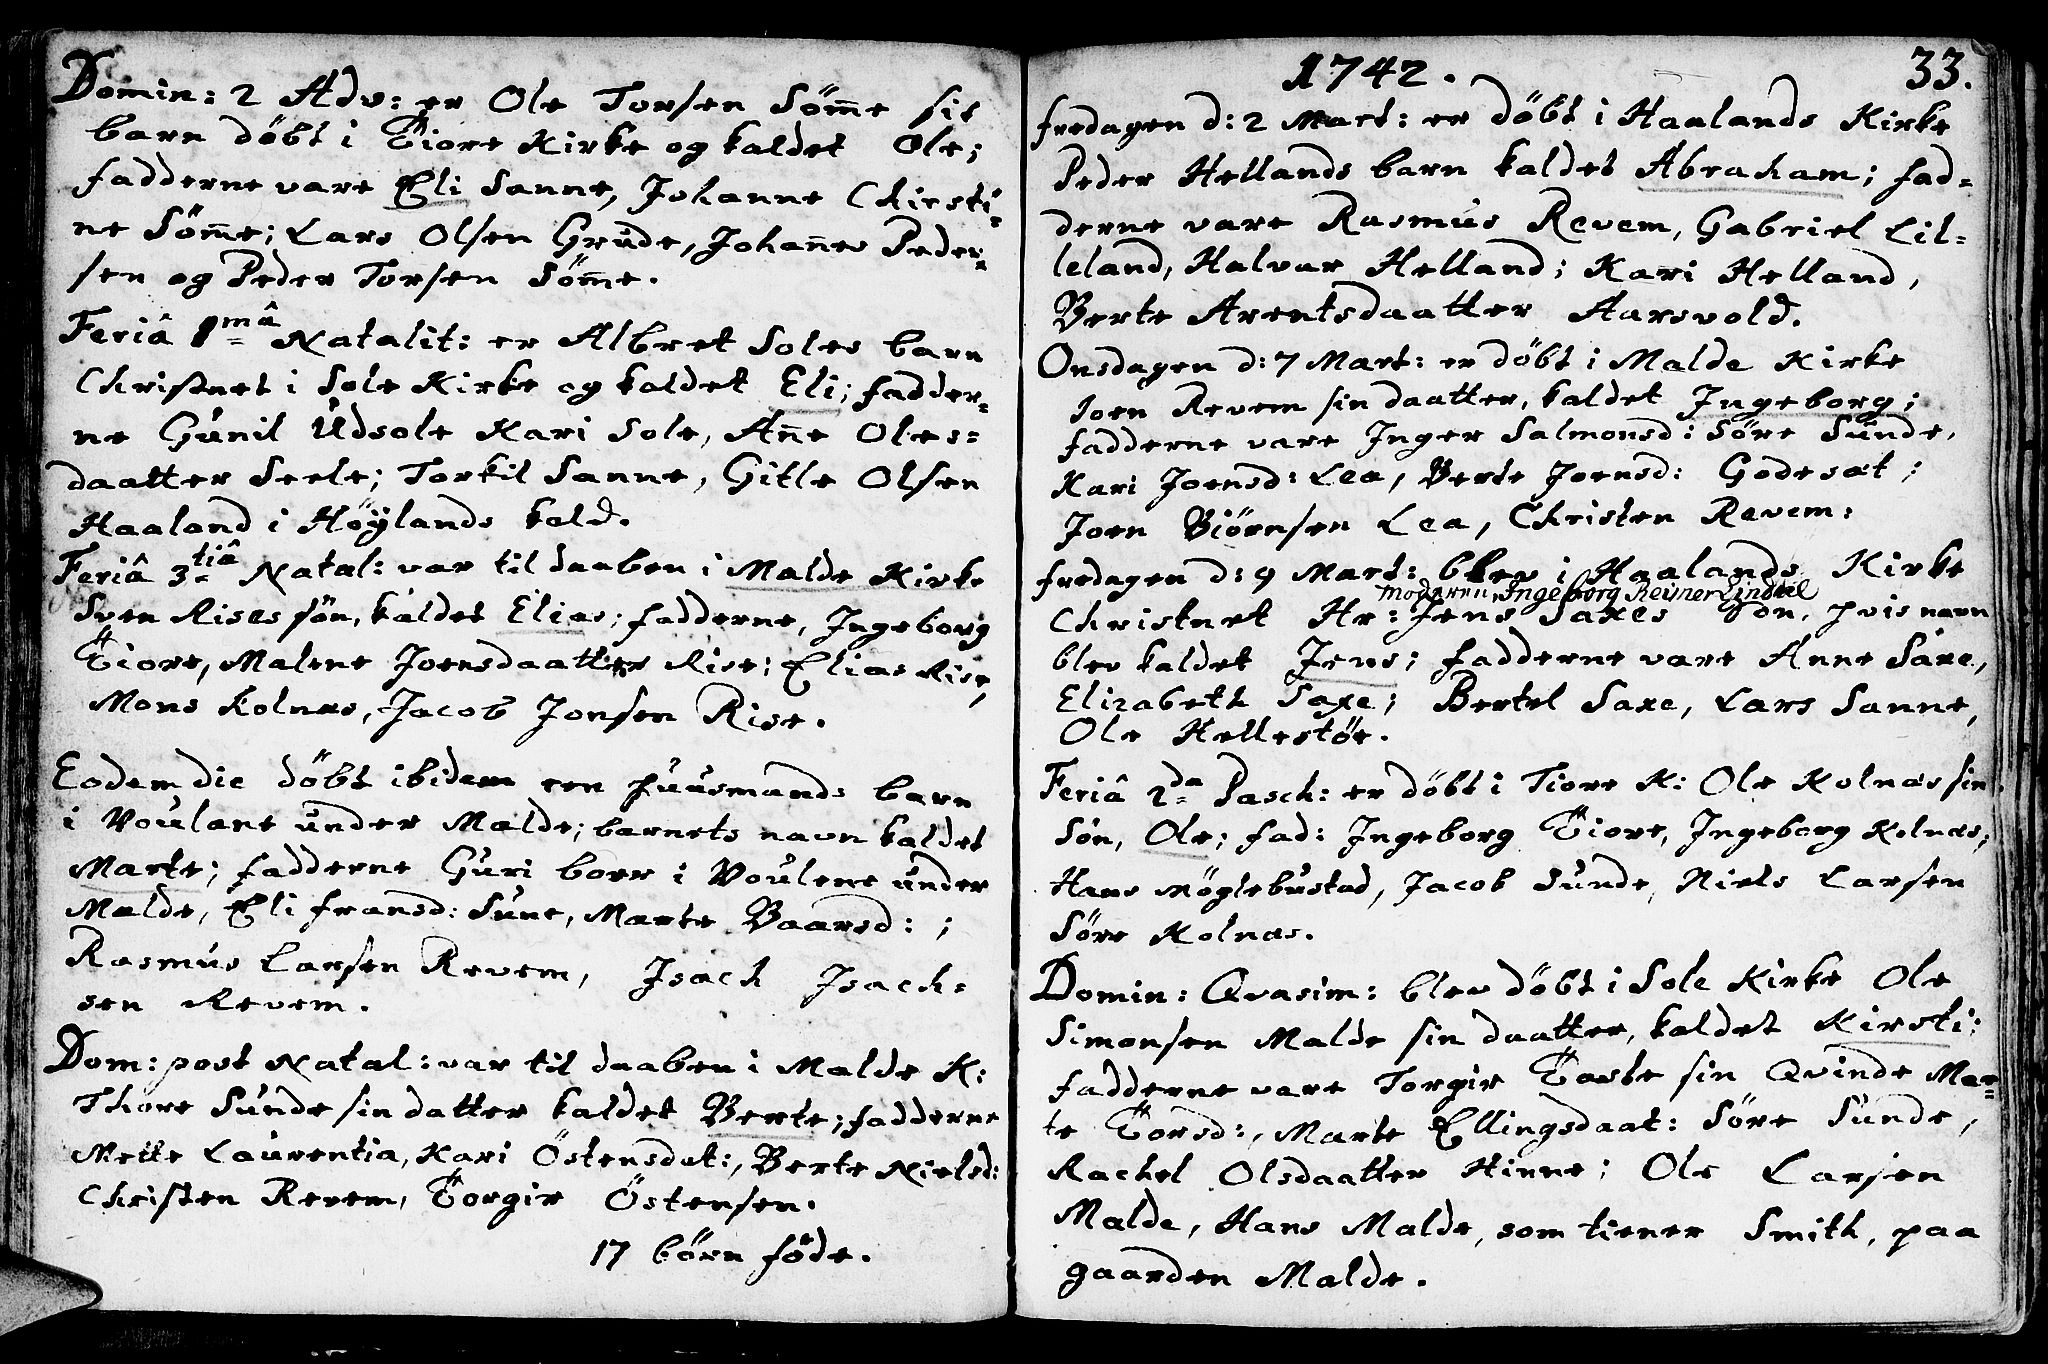 Domin: 2 Adv: er Ole Torsen Söm̅e sit
barn döbt i Tiore Kirke og kaldet Ole;
fadderne vare Eli Sanne, Johanne Christi-
ne Söm̅e; Lars Olsen Grude, Johan̅es Peder-
sen og Peder Torsen Söm̅e.
Feriâ 1mâ Natalit: er Albret Soles barn
Christnet i Sole Kirke og kaldet Eli; fadder-
ne Gunil Udsole Kari Sole, An̅e Oles=
daatter Seele; Torkil Sanne, Gitle Olsen
Haaland i Höylands kald.
Feriâ 3tiâ Natal: var til daaben i Malde Kirke
Sven Rises sön, kaldet Elias; fadderne, Ingeborg
Tiore, Malene Joensdaatter Rise; Elias Rise,
Mons Kolnæs, Jacob Jonsen Rise.
Eodem die döbt ibidem een Huusmands barn
i Voulane under Malde; barnets navn kaldet
Marte; fadderne Guri boer i Voulene under
Malde, Eli fransd: Sune, Marte Baarsd: ;
Rasmus Larsen Revem, Isach Isach=
sen Revem.
Dom: post Natal: var til daaben i Malde K:
Thore Sunde sin datter kaldet Berte; fadderne
Mette Laurentia, Kari Östensdat:, Berte Nielsd:
Christen Revem, Torgir Östensen.
17 börn föde.
1742. 33.
fredagen d: 2 Mart: er döbt i Haalands Kirke
Peder Hellands barn kaldet Abraham; fad=
derne vare Rasmus Revem, Gabriel Lil=
leland, Halvar Helland; Kari Helland,
Berte Arentsdaatter Aarsvold.
Onsdagen d: 7 Mart: er döbt i Malde Kirke
Joen Revem sin daatter, kaldet Ingeborg;
fadderne vare Inger Salmonsd: Söre Sunde,
Kari Joensd: Lea, Berte Joensd: Godeset;
Joen Biörnsen Lea, Christen Revem:
fredagen d: 9 Mart: blev i Haalands Kirke
Moderen Ingeborg Reiner Lindtel
Christnet Hr: Jens Saxes Sön, hvis navn
blev kaldet Jens; fadderne vare Anne Saxe,
Elizabeth Saxe; Bertel Saxe, Lars Sanne,
Ole Hellestöe.
Feriâ 2da Pasch: er döbt i Tiore K: Ole Kolnæs sin
Sön, Ole; fad: Ingeborg Tiore, Ingeborg Kolnæs;
Hans Möglebustad, Jacob Sunde, Niels Larsen
Söre Kolnæs.
Domin: Qvasim: blev döbt i Sole Kirke Ole
Simonsen Malde sin daatter, kaldet Kirsti;
fadderne vare Torgir Taste sin Qvinde Mar=
te Torsd:, Marte Ellingsdaat: Söre Sunde,
Rachel Olsdaatter Hinne; Ole Larsen
Malde, Hans Malde, som tiener Smith, paa
gaarden Malde.